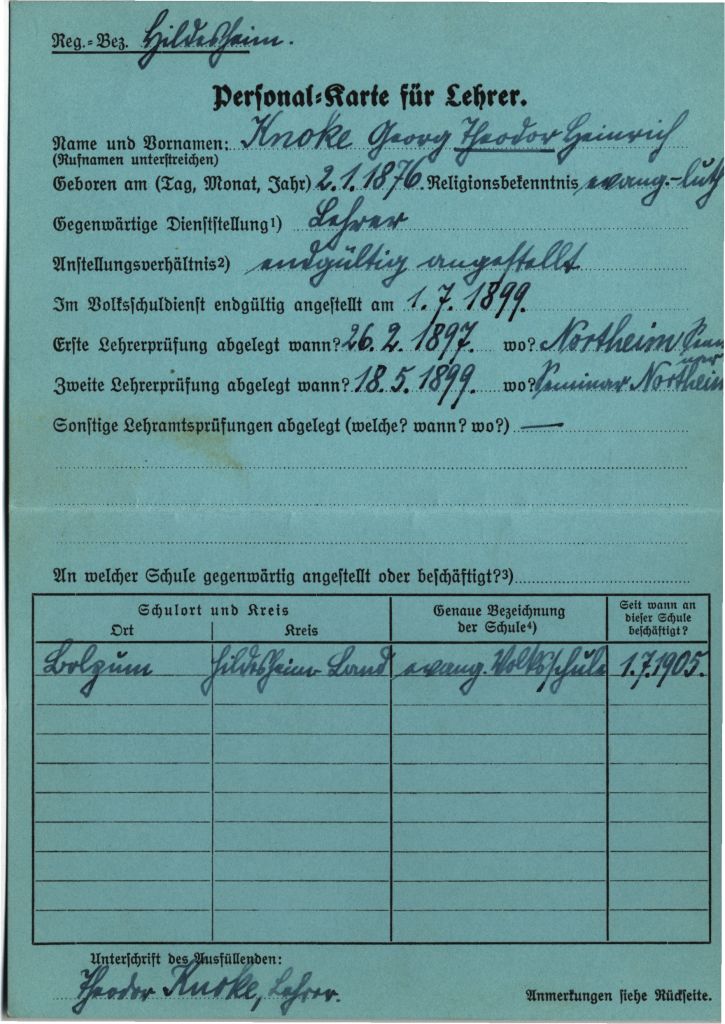 Reg.-Bez. Hildesheim.
Personal-Karte für Lehrer.
Name und Vornamen: Knoke Georg Theodor Heinrich
(Rufnamen unterstreichen)
Geboren am (Tag, Monat, Jahr) 2.1.1876. Religionsbekenntnis evang.-luth
Gegenwärtige Dienststellung1) Lehrer
Anstellungsverhältnis2) endgültig angestellt
Im Volksschuldienst endgültig angestellt am 1.7.1899.
Erste Lehrerprüfung abgelegt wann? 26.2.1897. wo? Northeim
Zweite Lehrerprüfung abgelegt wann? 18.5.1899. wo? Seminar Northeim
Sonstige Lehramtsprüfungen abgelegt (welche? wann? wo?) —
An welcher Schule gegenwärtig angestellt oder beschäftigt?3)
Schulort und Kreis
Ort Kreis
Genaue Bezeichnung
der Schule4)
Seit wann an
dieser Schule
beschäftigt?
Bolzum Hildesheim-Land evang. Volksschule 1.7.1905.
Unterschrift des Ausfüllenden:
Theodor Knoke, Lehrer.
Anmerkungen siehe Rückseite.